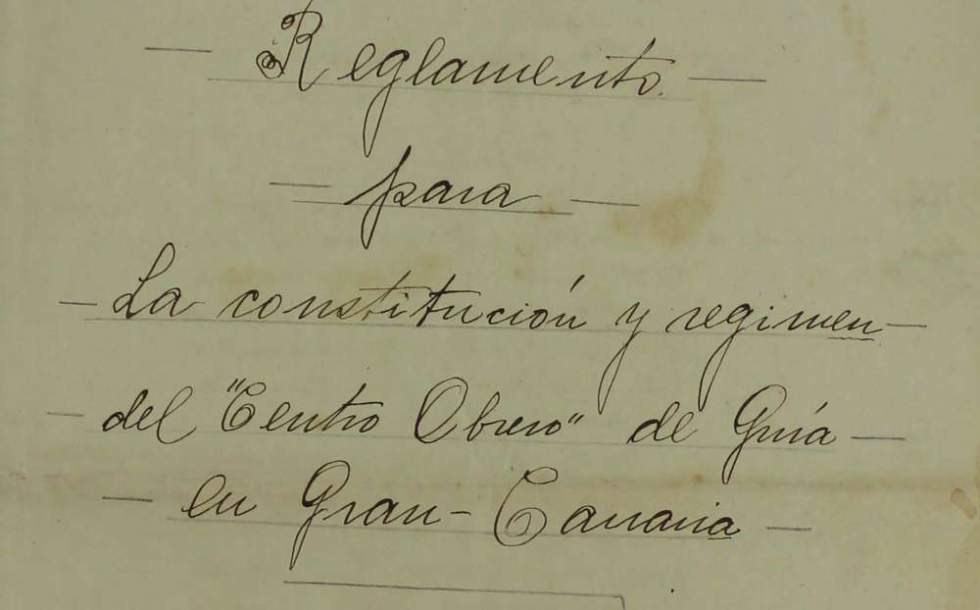 — Reglamento. —
— para —
— La constitución y regimen —
— del "Centro Obrero" de Guía —
— en Gran-Canaria —